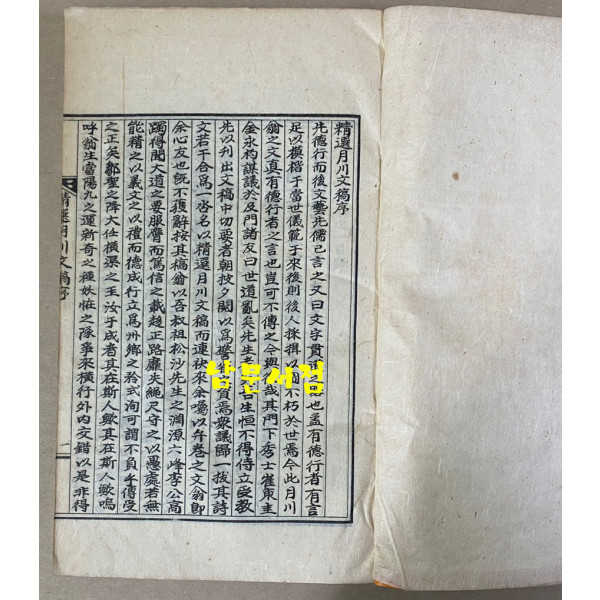 精選月川文稿序
先德行而後文藝先儒已言之又曰文字貫道之 也盖有德行者有言
足以模楷于當世儀範于來後則後人採摭以 不朽於世焉今此月川
翁之文真有德行者之言也豈可不傳之今與 哉其門下秀士崔東主
金永杓謀議於及門諸友曰世道亂矣先生 吾生恒不得侍立受教
先以刊出文稿中切要者朝披夕閱以爲 資焉衆議歸一拔其詩
文若干合爲一沓名以精選月川文稿而連袂來余囑以弁卷之文翁即
余心友也旣不獲辭按其稿翁以吾叔祖松沙先生之淵源六峰李公高
躅得聞大道之要服膺而篤信之載趍正路靡失繩尺守之以愚處若無
能精之以義文之以禮而德成行立爲州鄕之矜式洵可謂不負乎傳受
之正矣鄒聖之降大任橫渠之玉汝于成者其在斯人歟其在斯人歟嗚
呼翁生當陽九之運新奇之種妖恠之隊爭來橫行外內交錯以是非得
精選月川文稿序
一
남문서검